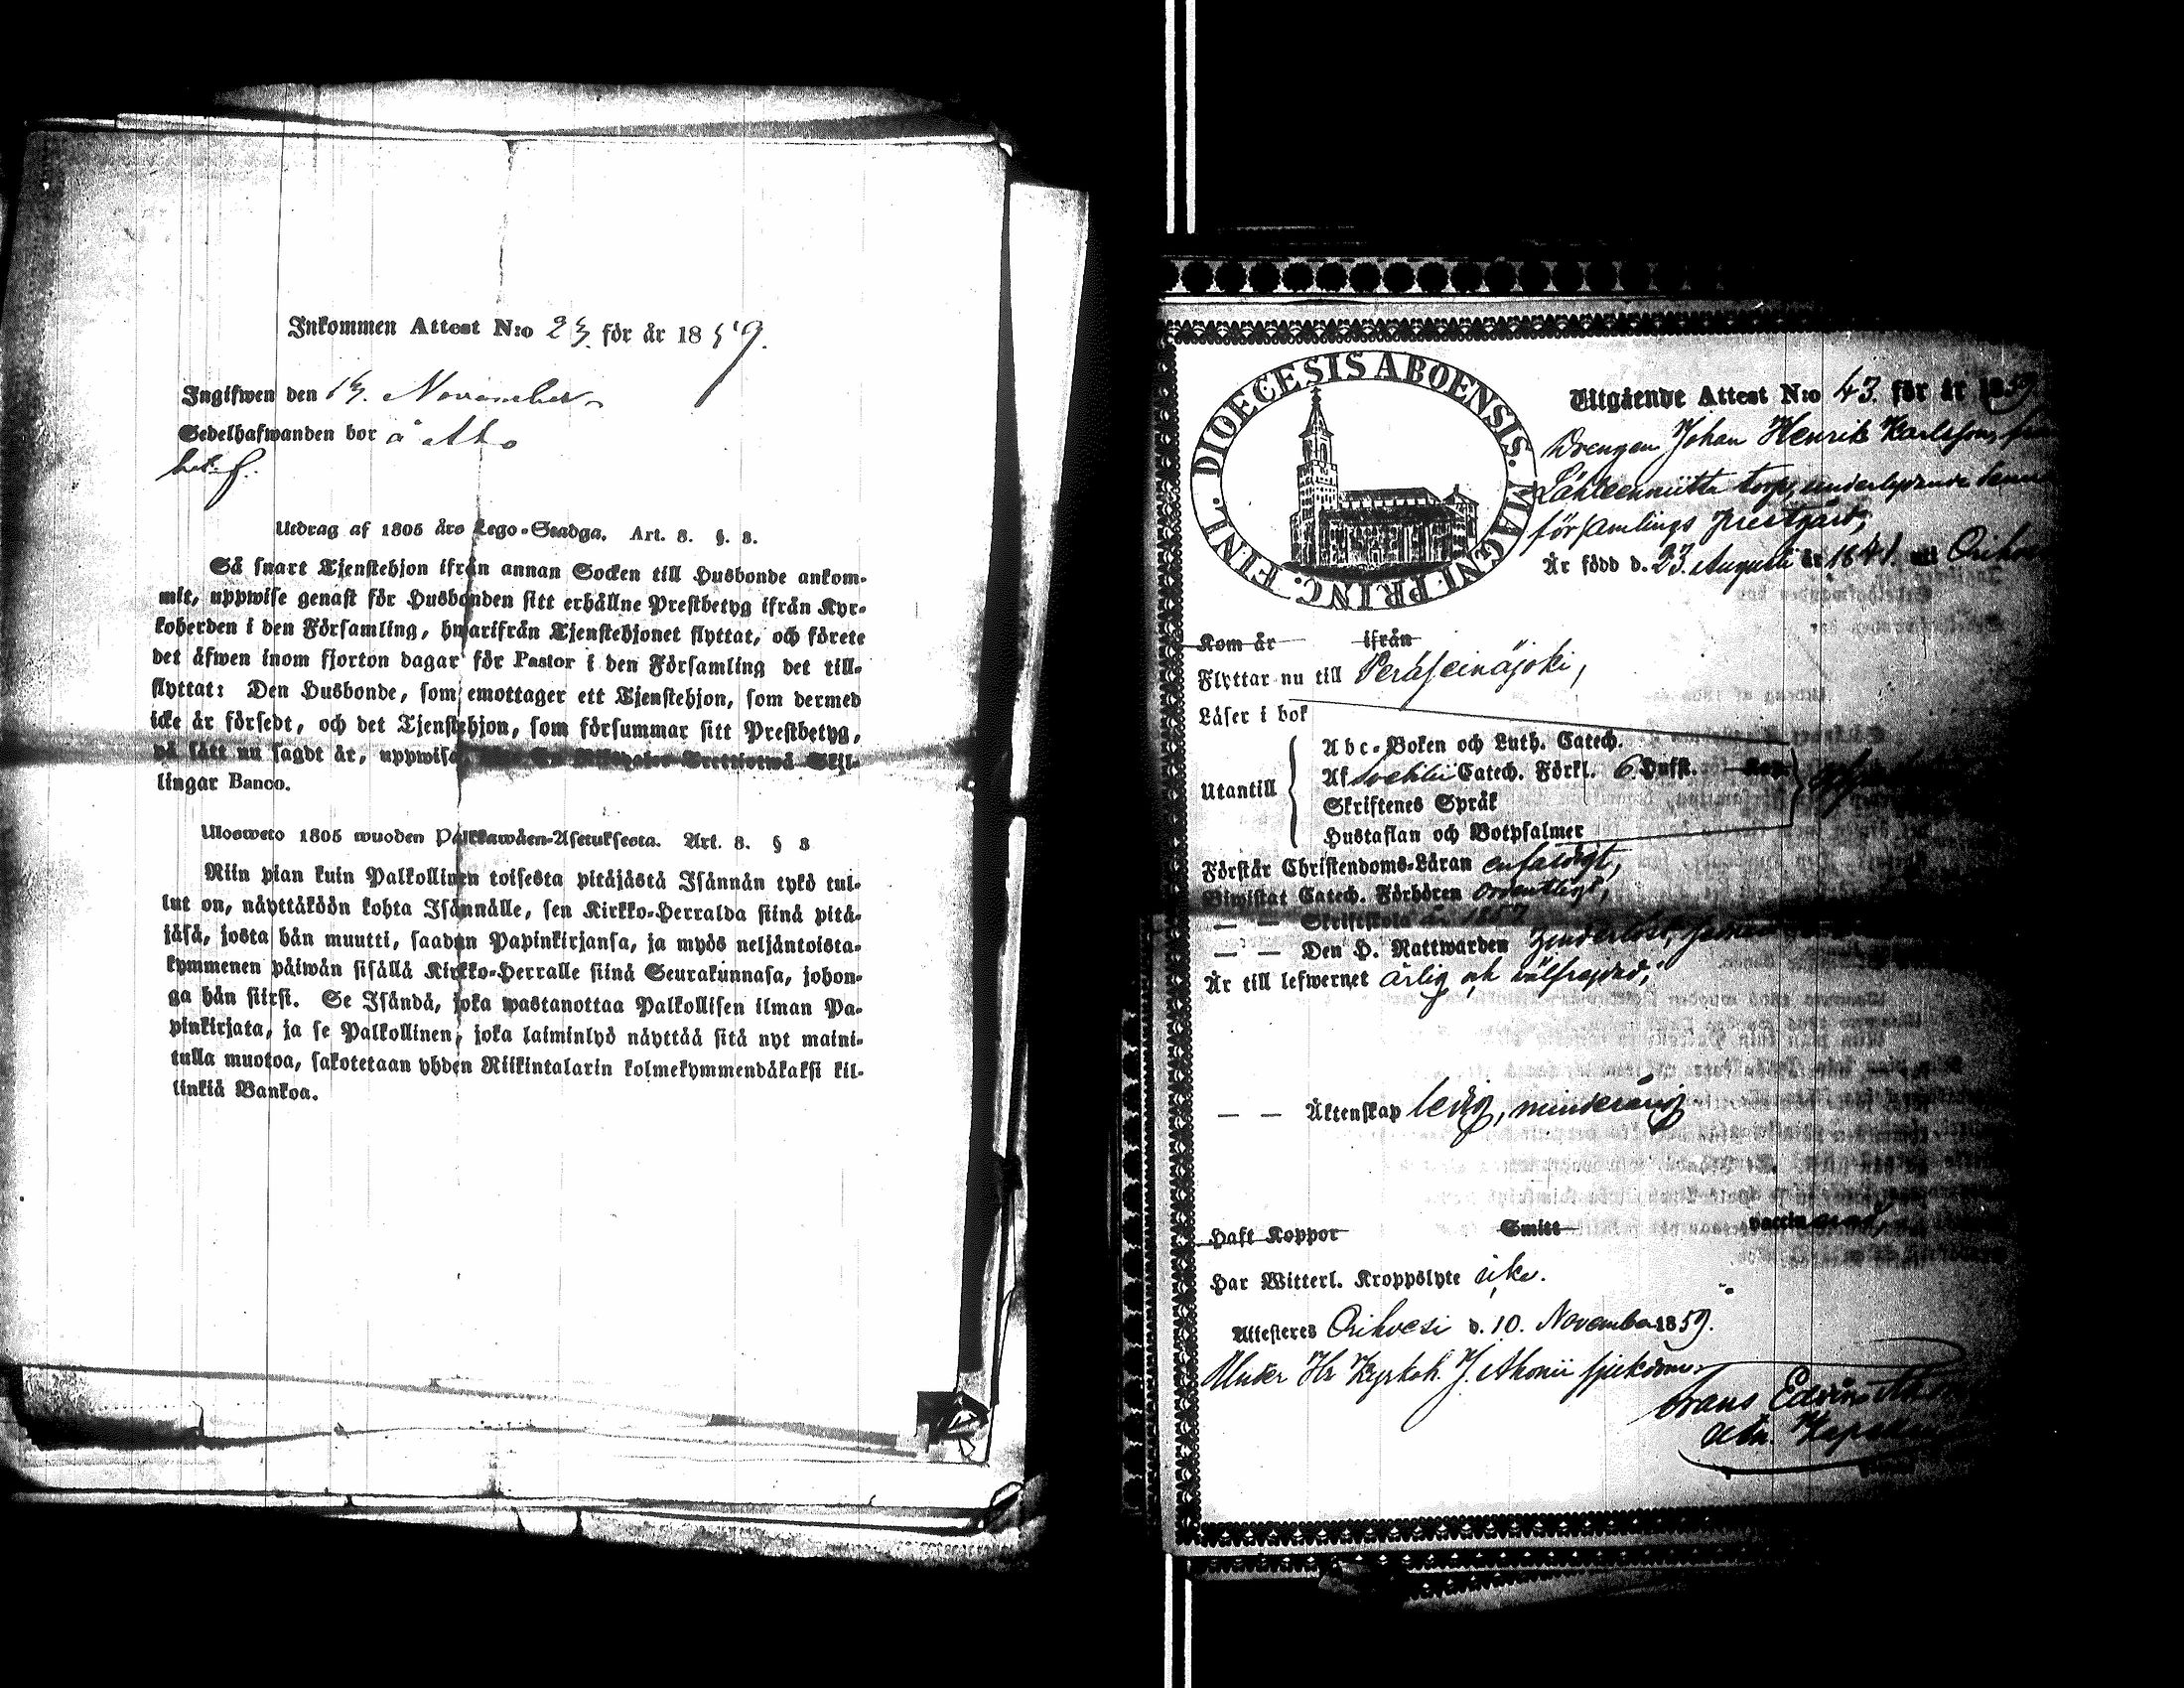 Inkommen Attest N:o 23. för år 1859.
Ingifwen den 13. November
Sedelhafwanden bor å Aho
Utdrag af 1805 års Lego-Stadga. Art. 8. §. 8.
Så snart Tjenstehjon ifrån annan Socken till Husbonde ankom-
mit, uppwise genast för Husbonden sitt erhållne Prestbetyg ifrån Kyr-
koherden i den Församling, hwarifrån Tjenstehjonet flyttat, och förete
det äfwen inom fjorton dagar för Pastor i den Församling det till-
flyttat: Den Husbonde, som emottager ett Tjenstehjon, som dermed
icke är försedt, och det Tjenstehjon, som försummar sitt Prestbetyg,
på sätt nu sagdt är, uppwisa, Trettiotwå Skil-
lingar Banco.
Ulosweto 1805 wuoden Palkkawäen-Asetuksesta. Art. 8. § 8
Niin pian kuin Palkollinen toisesta pitäjästä Isännän tykö tul-
lut on, näyttäköön kohta Isännälle, sen Kirkko-Herralda siinä pitä-
jäsä, josta hän muutti, saadun Papinkirjansa, ja myös neljäntoista-
kymmenen päiwän sisällä Kirkko-Herralle siinä Seurakunnasa, johon-
ga hän siirsi. Se Isändä, joka wastanottaa Palkollisen ilman Pa-
pinkirjata, ja se Palkollinen, joka laiminlyö näyttää sitä nyt maini-
tulla muotoa, sakotetaan yhden Riikintalarin kolmekymmendäkaksi kil-
linkiä Bankoa.
DIOECESIS ABOENSIS. MAGNI PRINC. FINL.
Utgående Attest N:o 43. för år 1859
Drengen Johan Henrik Karlsson, från
Lähteenmiitta torp, underlydande denna
församlings prestgård,
Är född d. 23. Augusti år 1841. uti Orihvesi
Kom år ifrån
Flyttar nu till Peräseinäjoki,
Läser i bok
Utantill
Abc-Boken och Luth. Catech.
Af Svebilii Catech. Förkl. 6 Hufst. Kap.
Skriftenes Språk
Hustaflan och Botpsalmer
Förstår Christendoms-Läran enfaldigt,
Biwistat Catech. Förhören ordentligt,
— — Skriftskola år 1857
— — Den H. Nattwarden
Är till lefwernet ärlig och wälfrejdad,
— — Äktenskap ledig, minderårig
Haft Koppor Smitt vaccinerad,
Har Witterl. Kroppslyte icke.
Attesteres Orihvesi d. 10. November 1859.
Under Hr Kyrkoh. J. Ahonii sjukdom
Frans Edvin
Adn. Kapellan